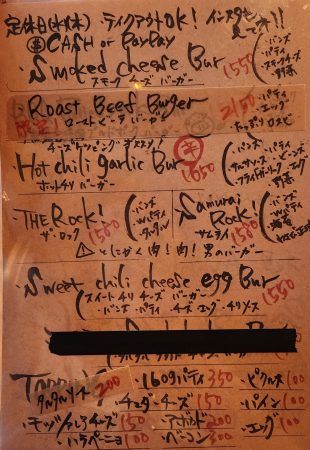 定休日(木)(休) テイクアウトOK! インスタも見てネ!!
CASH or PayPay
・Smoked cheese Bur 1550
スモーク チーズ バーガー
(・バンズ ・パティ ・スモークチーズ ・野菜
・Roast Beef Burger 2150
限定! ローストビーフバーガー
(・バンズ ・パティ ・エッグ ・たっぷりロスビ
チーズトッピングオススメ!
Hot chili garlic Bur 辛 1650
ホットチリ バーガー
(・バンズ ・パティ
THE Rock! 1580
ザ・ロック
(・バンズ ・Wパティ ・タルタル
Samurai Rock! 1580
サムライ
(・バンズ ・Wパティ
⚠とにかく肉!肉!男のバーガー
・Sweet chili cheese egg Bur 1550
(スイートチリ チーズ バーガー
・バンズ ・パティ ・チーズ ・エッグ ・チリソース
TOPPING
・タルタルソース 200
・160gパティ 350
・ピクルス 100
・チェダーチーズ 150
・パイン 100
・モッツァレラチーズ 150
・アボカド 200
・エッグ 100
・ハラペーニョ 100
・ベーコン 300